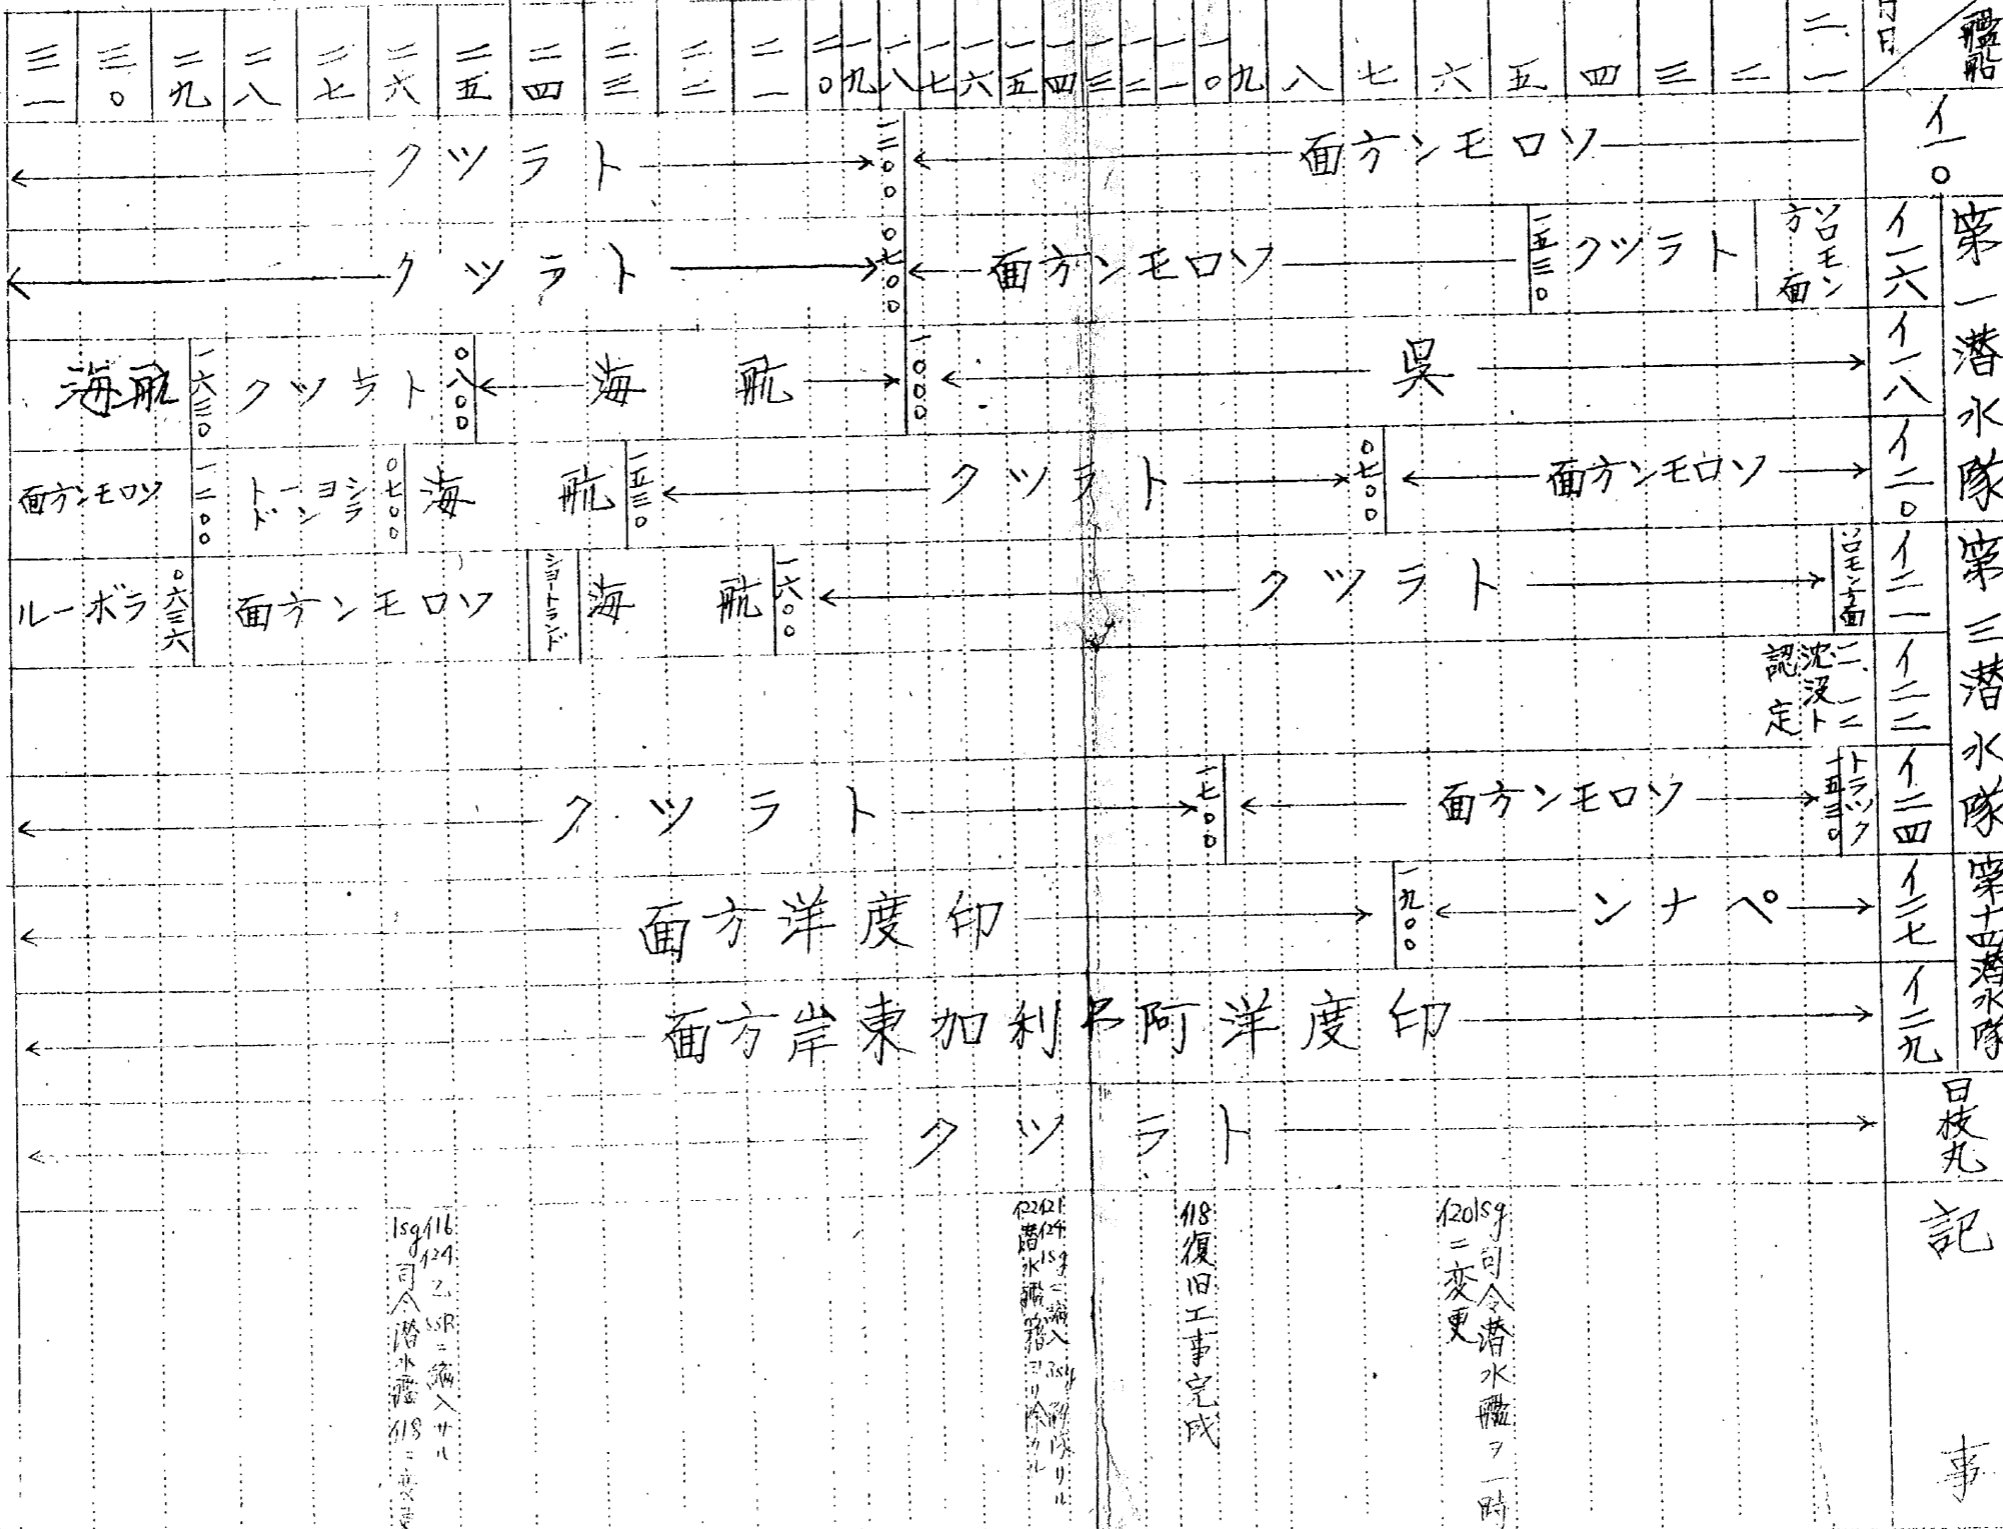 艦船
月日
一二、一 二 三 四 五 六 七 八 九 一〇 一一 一二 一三 一四 一五 一六 一七 一八 一九 二〇 二一 二二 二三 二四 二五 二六 二七 二八 二九 三〇 三一
イ一〇
ソロモン方面
一二〇〇
トラツク
第一潜水隊
イ一六
ソロモン方面
トラツク
一五三〇
ソロモン方面
〇七〇〇
トラツク
イ一八
呉
一〇〇〇
航海
〇八〇〇
トラツク
一六三〇
航海
イ二〇
ソロモン方面
〇七〇〇
トラツク
一五三〇
航海
〇七〇〇
シヨートランド
一二〇〇
ソロモン方面
第三潜水隊
イ二一
ソロモン方面
トラツク
一六〇〇
航海
シヨートランド
ソロモン方面
〇六三六
ラボール
イ二二
一二、一二
沈没ト
認定
イ二四
トラツク
一五三〇
ソロモン方面
一七〇〇
トラツク
第十四潜水隊
イ二七
ペナン
一九〇〇
印度洋方面
イ二九
印度洋阿弗利加東岸方面
日枝丸
トラツク
記事
1sg司令潜水艦ヲ一時
イ20ニ変更
イ18復旧工事完成
イ21イ24 1sgニ編入 3sg解隊
イ22潜水艦籍ヨリ除カル
イ16イ24乙SSRニ編入サル
1sg司令潜水艦イ18ニ変更